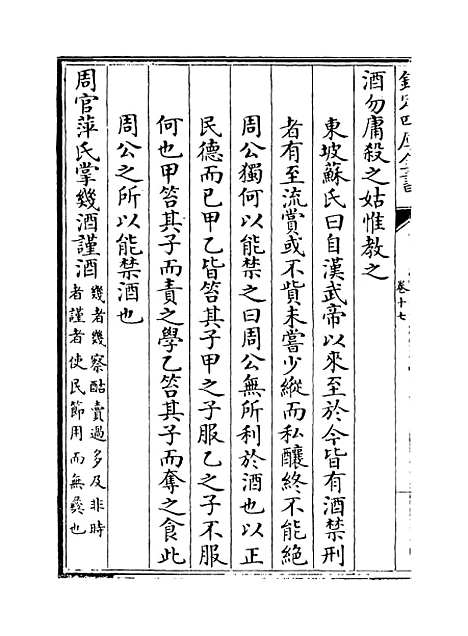 欽定四庫全書
卷十七
酒勿庸殺之姑惟教之
東坡蘇氏曰自漢武帝以來至於今皆有酒禁刑
者有至流賞或不貲未嘗少縱而私釀終不能絶
周公獨何以能禁之曰周公無所利於酒也以正
民德而已甲乙皆笞其子甲之子服乙之子不服
何也甲笞其子而責之學乙笞其子而奪之食此
周公之所以能禁酒也
周官萍氏掌幾酒謹酒
幾者幾察酤賣過多及非時
者謹者使民節用而無彞也